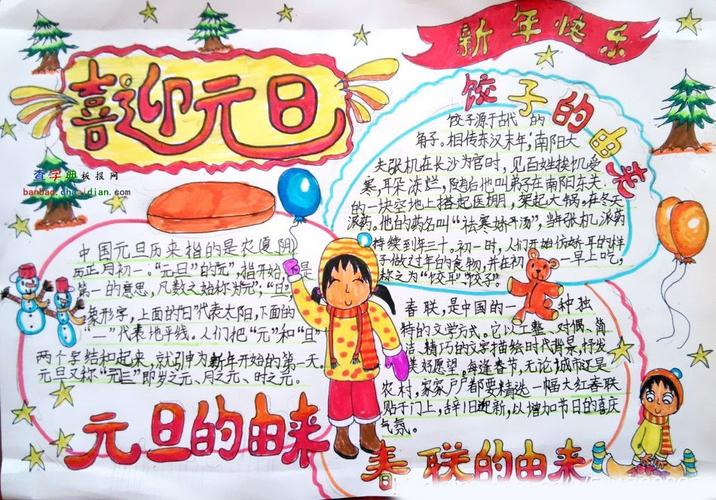 新年快乐
喜迎元旦
查字典板报网
banbao.chazidian.com
饺子的由来
饺子源于古代的
角子。相传东汉末年,南阳大
夫张机在长沙为官时,见百姓挨饥受
寒,耳朵冻烂,随后他叫弟子在南阳东关
的一块空地上搭起医棚,架起大锅。在冬天
派药。他的药名叫“祛寒娇耳汤”,当年张机派药
持续到年三十。初一时,人们开始仿娇耳的样
子做过年的食物,并在初一早上吃,
称之为“饺耳”“饺子”。
中国元旦历来指的是农历阴
历正月初一。“元旦”的“元”,指开始,是
第一的意思,凡数之始称为“元”;“旦”
象形字,上面的“日”代表太阳,下面的
“一”代表地平线。人们把“元”和“旦”
两个字结和起来,就引申为新年开始的第一天。
元旦又称“三元”即岁之元、月之元、时之元。
元旦的由来
春联,是中国的一种独
特的文学方式。它以工整、对偶、简
洁、精巧的文字描绘时代背景,抒发
美好愿望,每逢春节,无论城市还是
农村,家家户户都要精选一幅大红春联
贴于门上,辞旧迎新,以增加节日的喜庆
气氛。
春联的由来